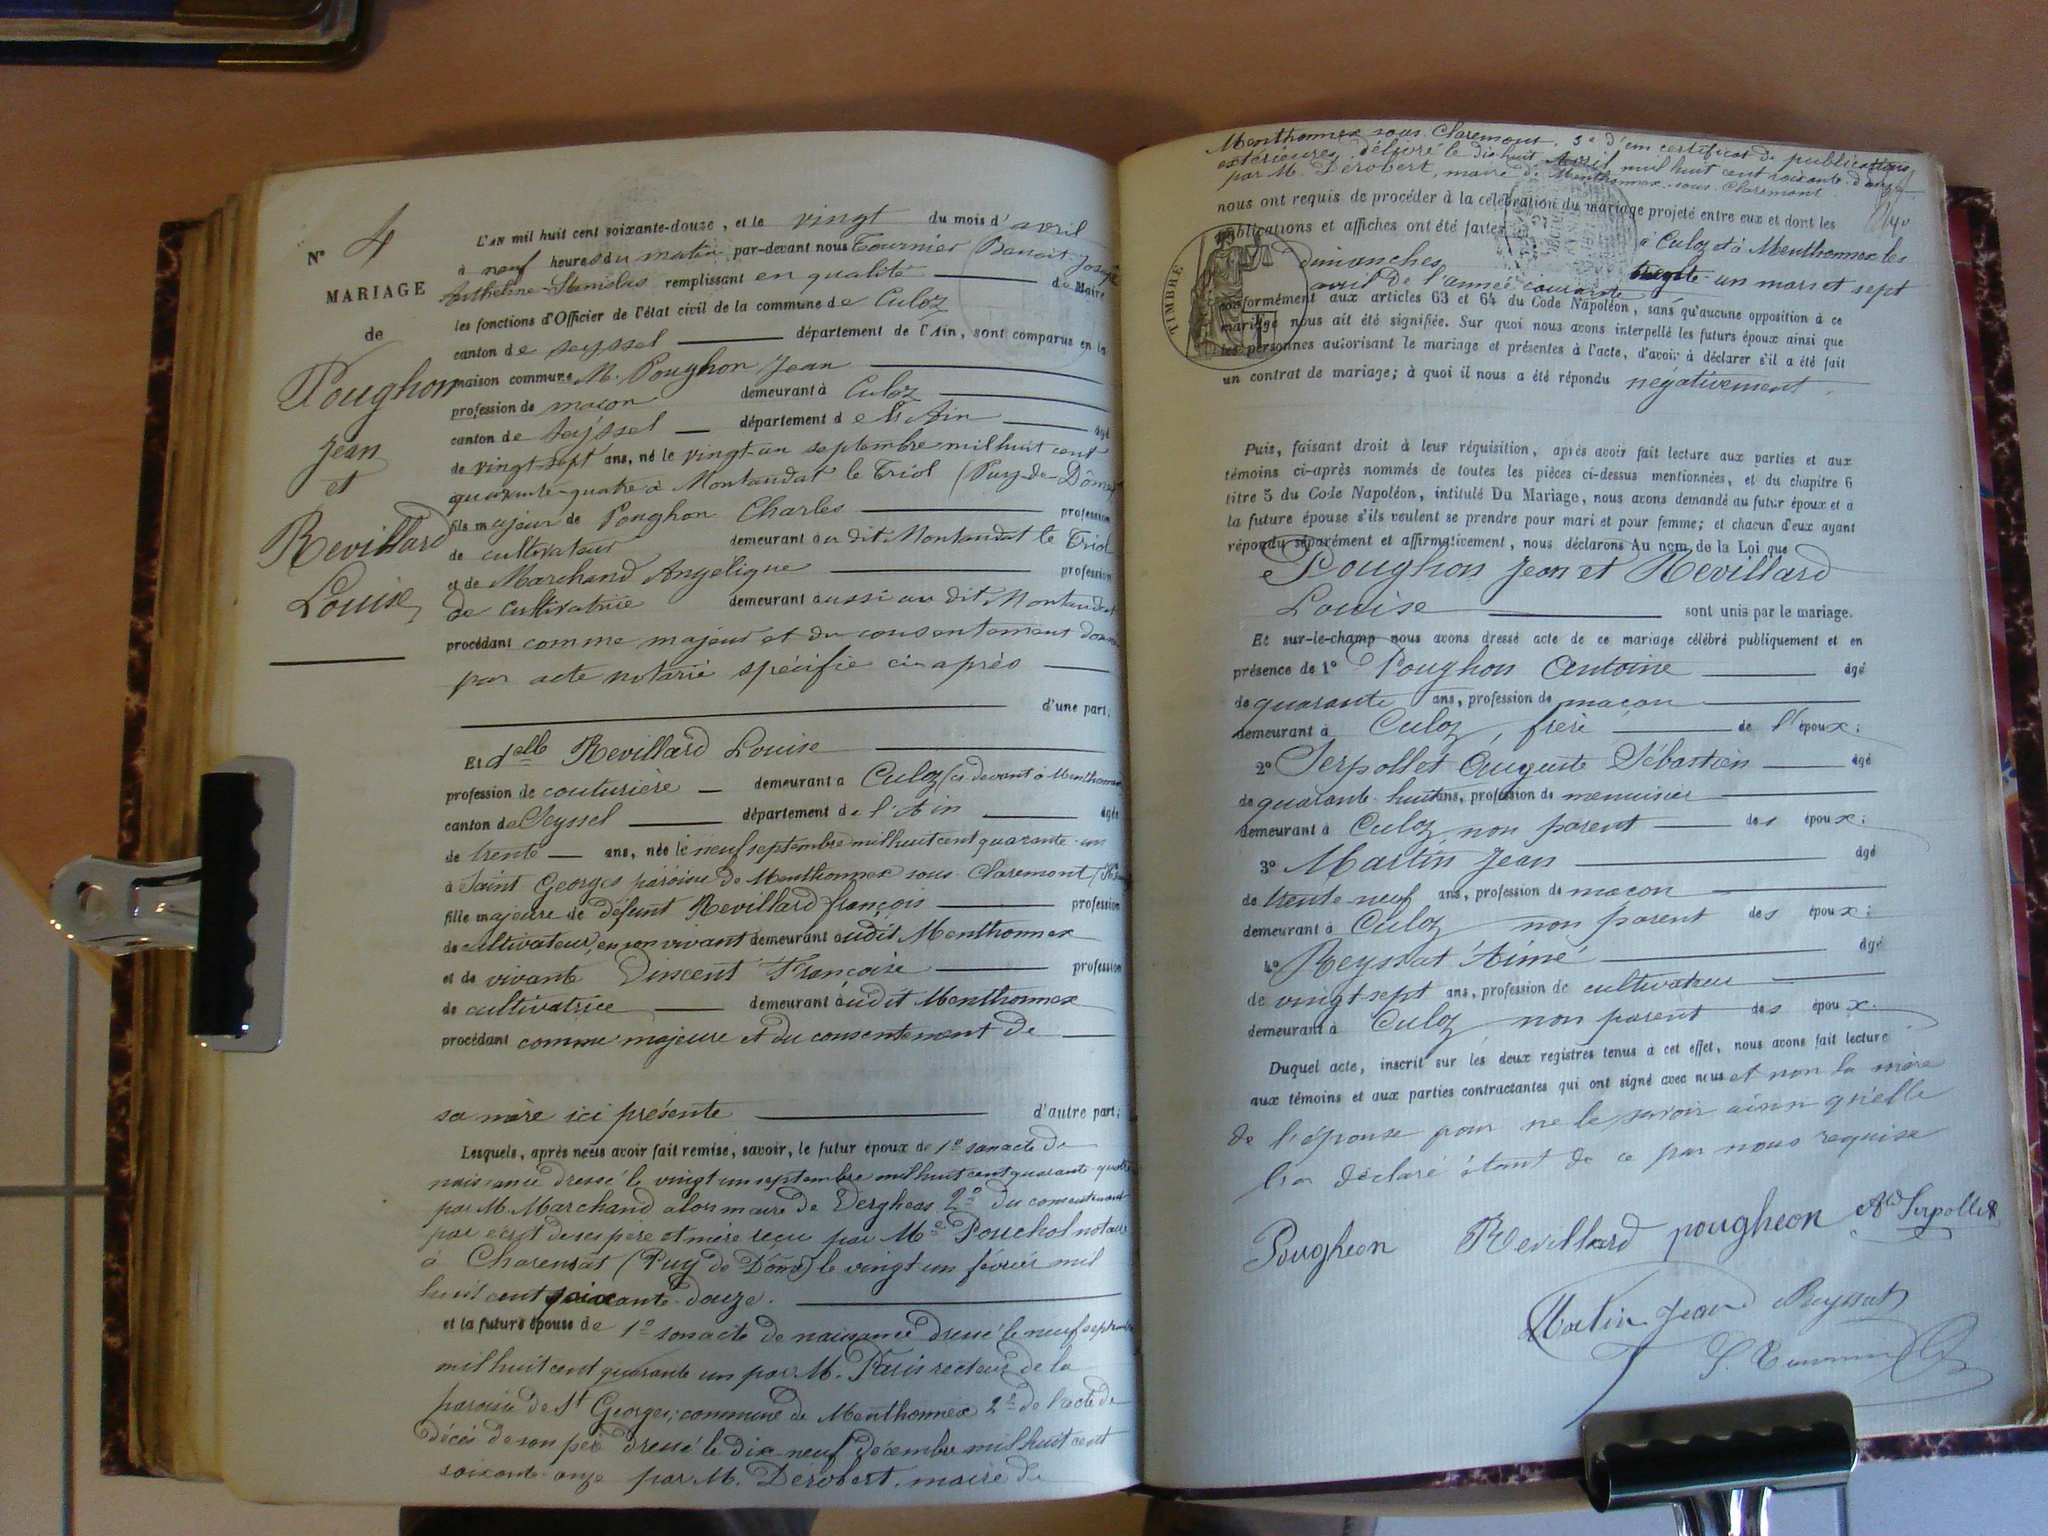 N° 4
MARIAGE
de
Poughon
Jean
et
Revillard
Louise
L'AN mil huit cent soixante-douze, et le vingt du mois d'avril
à neuf heures du matin, par-devant nous Tournier (Benoit-Joseph
Anthelme-Stanislas remplissant en qualité de Maire
les fonctions d'Officier de l'état civil de la commune de Culoz
canton de Seyssel département de l'Ain, sont comparus en la
maison commune M. Poughon Jean
profession de maçon demeurant à Culoz
canton de Seyssel département de l'Ain âgé
de vingt-sept ans, né le vingt-un septembre mil huit cent
quarante-quatre à Montaudat le Triol (Puy-de-Dôme)
fils majeur de Poughon Charles profession
de cultivateur demeurant au dit Montaudat le Triol
et de Marchand Angélique profession
de cultivatrice demeurant aussi au dit Montaudat
procédant comme majeur et du consentement donné
par acte notarié spécifié ci-après
d'une part;
Et delle Revillard Louise
profession de couturière demeurant à Culoz (ci devant à Menthonnex
canton de Seyssel département de l'Ain âgée
de trente ans, née le neuf septembre mil huit cent quarante-un
à Saint Georges paroisse de Menthonnex sous Claremont
fille majeure de défunt Revillard françois profession
de cultivateur, en son vivant demeurant audit Menthonnex
et de vivante Vincent Françoise profession
de cultivatrice demeurant audit Menthonnex
procédant comme majeure et du consentement de
sa mère ici présente d'autre part;
Lesquels, après nous avoir fait remise, savoir, le futur époux de 1° son acte de
naissance dressé le vingt un septembre mil huit cent quarante-quatre
par M. Marchand alors maire de Vergheas 2° du consentement
par écrit de ses père et mère reçu par Me Pouchol notaire
à Charensat (Puy de Dôme) le vingt un février mil
huit cent soixante-douze.
et la future épouse de 1° son acte de naissance dressé le neuf septembre
mil huit cent quarante un par M. Paris recteur de la
paroisse de St Georges, commune de Menthonnex 2° de l'acte de
décès de son père dressé le dix-neuf décembre mil huit cent
soixante-onze par M. Dérobert, maire de
Menthonnex sous Claremont, 3° d'un certificat de publications
extérieures, délivré le dix huit Avril mil huit cent soixante-douze
par M. Dérobert, maire de Menthonnex-sous-Claremont
nous ont requis de procéder à la célébration du mariage projeté entre eux et dont les
publications et affiches ont été faites à Culoz et à Menthonnex les
dimanches trente un mars et sept
avril de l'année courante
TIMBRE
conformément aux articles 63 et 64 du Code Napoléon, sans qu'aucune opposition à ce
mariage nous ait été signifiée. Sur quoi nous avons interpellé les futurs époux ainsi que
les personnes autorisant le mariage et présentes à l'acte, d'avoir à déclarer s'il a été fait
un contrat de mariage; à quoi il nous a été répondu négativement.
Puis, faisant droit à leur réquisition, après avoir fait lecture aux parties et aux
témoins ci-après nommés de toutes les pièces ci-dessus mentionnées, et du chapitre 6
titre 5 du Code Napoléon, intitulé Du Mariage, nous avons demandé au futur époux et a
la future épouse s'ils veulent se prendre pour mari et pour femme; et chacun d'eux ayant
répondu séparément et affirmativement, nous déclarons Au nom de la Loi que
Poughon Jean et Revillard
Louise sont unis par le mariage.
Et sur-le-champ nous avons dressé acte de ce mariage célébré publiquement et en
présence de 1° Poughon Antoine âgé
de quarante ans, profession de maçon
demeurant à Culoz, frère de l'époux;
2° Serpollet Auguste Sébastien âgé
de quarante-huit ans, profession de menuisier
demeurant à Culoz non parent des époux;
3° Martin Jean âgé
de trente neuf ans, profession de maçon
demeurant à Culoz non parent des époux;
4° Reyssat Aimé âgé
de vingt sept ans, profession de cultivateur
demeurant à Culoz non parent des époux.
Duquel acte, inscrit sur les deux registres tenus à cet effet, nous avons fait lecture
aux témoins et aux parties contractantes qui ont signé avec nous et non la mère
de l'épouse pour ne le savoir ainsi qu'elle
l'a déclaré étant de ce par nous requise
Pougheon Revillard pougheon Ate Serpollet
Martin Jean Reyssat